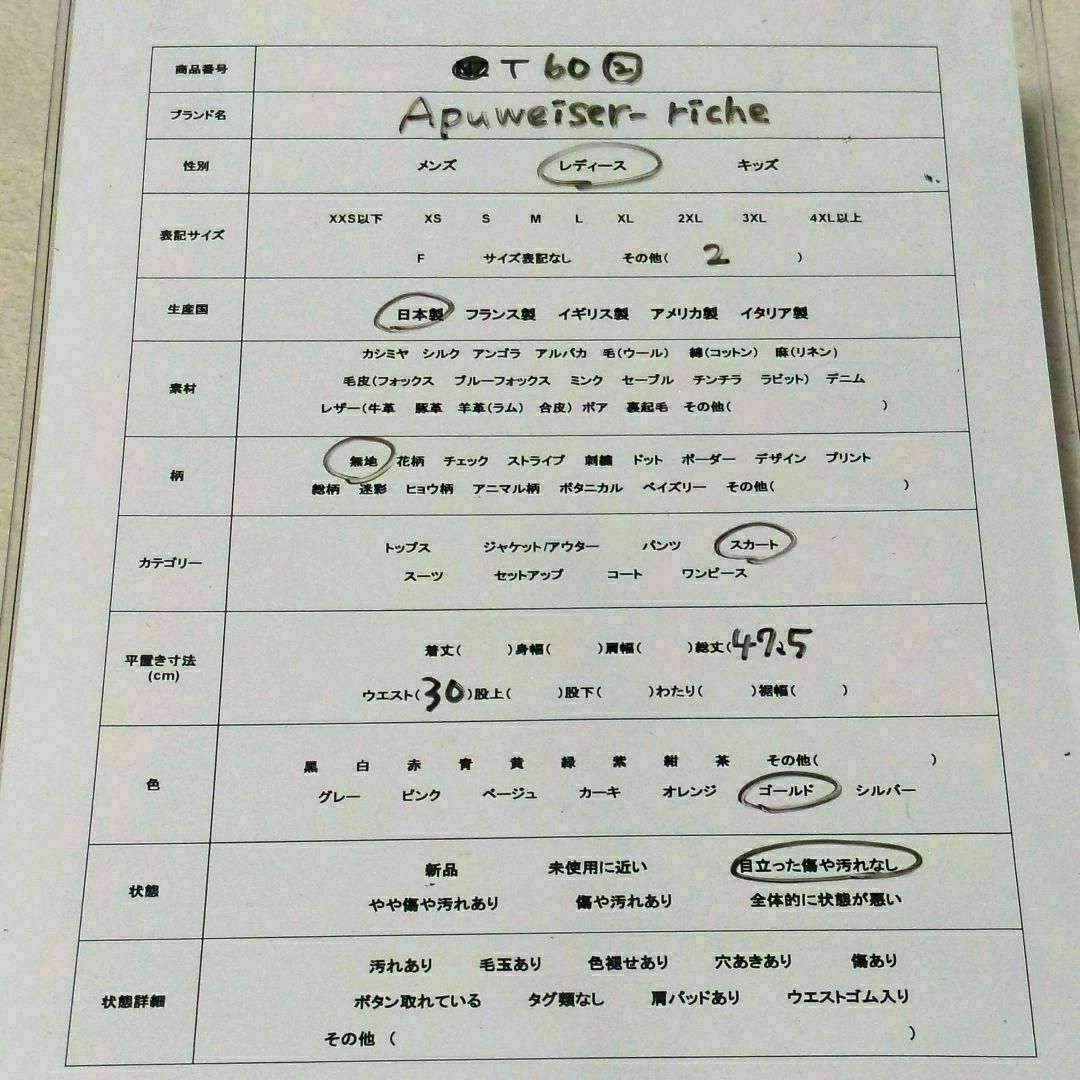 商品番号 T 60 ②
ブランド名 Apuweiser-riche
性別 メンズ レディース キッズ
表記サイズ
XXS以下 XS S M L XL 2XL 3XL 4XL以上
F サイズ表記なし その他( 2 )
生産国 日本製 フランス製 イギリス製 アメリカ製 イタリア製
素材
カシミヤ シルク アンゴラ アルパカ 毛(ウール) 綿(コットン) 麻(リネン)
毛皮(フォックス ブルーフォックス ミンク セーブル チンチラ ラビット) デニム
レザー(牛革 豚革 羊革(ラム) 合皮) ボア 裏起毛 その他( )
柄
無地 花柄 チェック ストライプ 刺繍 ドット ボーダー デザイン プリント
総柄 迷彩 ヒョウ柄 アニマル柄 ボタニカル ペイズリー その他( )
カテゴリー
トップス ジャケット/アウター パンツ スカート
スーツ セットアップ コート ワンピース
平置き寸法
(cm)
着丈( )身幅( )肩幅( )総丈(47.5
ウエスト(30)股上( )股下( )わたり( )裾幅( )
色
黒 白 赤 青 黄 緑 紫 紺 茶 その他( )
グレー ピンク ベージュ カーキ オレンジ ゴールド シルバー
状態
新品 未使用に近い 目立った傷や汚れなし
やや傷や汚れあり 傷や汚れあり 全体的に状態が悪い
状態詳細
汚れあり 毛玉あり 色褪せあり 穴あきあり 傷あり
ボタン取れている タグ類なし 肩パッドあり ウエストゴム入り
その他 ( )